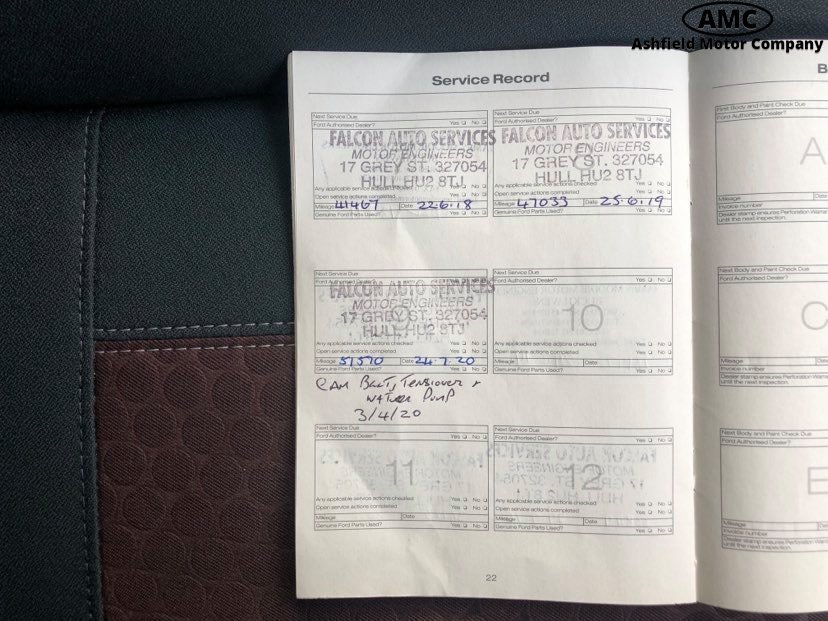 AMC
Ashfield Motor Company
Service Record
Next Service Due
Ford Authorised Dealer? Yes No
FALCON AUTO SERVICES
MOTOR ENGINEERS
17 GREY ST. 327054
HULL HU2 8TJ
Any applicable service actions checked Yes No
Open service actions completed Yes No
Mileage 41467 Date 22.6.18
Genuine Ford Parts Used? Yes No
Next Service Due
Ford Authorised Dealer? Yes No
FALCON AUTO SERVICES
MOTOR ENGINEERS
17 GREY ST. 327054
HULL HU2 8TJ
Any applicable service actions checked Yes No
Open service actions completed Yes No
Mileage 47033 Date 25.6.19
Genuine Ford Parts Used? Yes No
Next Service Due
Ford Authorised Dealer? Yes No
FALCON AUTO SERVICES
MOTOR ENGINEERS
17 GREY ST. 327054
HULL HU2 8TJ
Any applicable service actions checked Yes No
Open service actions completed Yes No
Mileage 51570 Date 24.7.20
Genuine Ford Parts Used? Yes No
CAM BELT, TENSIONER +
WATER PUMP
3/4/20
Next Service Due
Ford Authorised Dealer? Yes No
10
Any applicable service actions checked Yes No
Open service actions completed Yes No
Mileage Date
Genuine Ford Parts Used? Yes No
Next Service Due
Ford Authorised Dealer? Yes No
11
Any applicable service actions checked Yes No
Open service actions completed Yes No
Mileage Date
Genuine Ford Parts Used? Yes No
Next Service Due
Ford Authorised Dealer? Yes No
12
Any applicable service actions checked Yes No
Open service actions completed Yes No
Mileage Date
Genuine Ford Parts Used? Yes No
22
B
First Body and Paint Check Due
Ford Authorised Dealer?
A
Mileage
Invoice number
Dealer stamp ensures Perforation
until the next inspection.
Next Body and Paint Check Due
Ford Authorised Dealer?
C
Mileage
Invoice number
Dealer stamp ensures Perforation
until the next inspection.
Next Body and Paint Check Due
Ford Authorised Dealer?
E
Mileage
Invoice number
Dealer stamp ensures Perforation
until the next inspection.